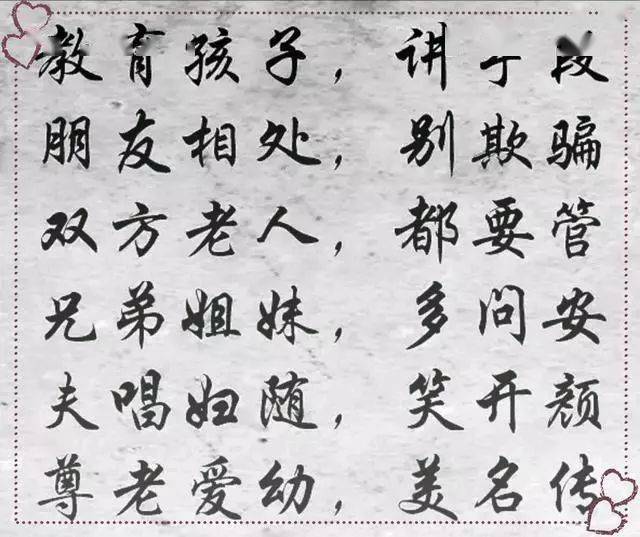 教育孩子，讲手段
朋友相处，别欺骗
双方老人，都要管
兄弟姐妹，多问安
夫唱妇随，笑开颜
尊老爱幼，美名传